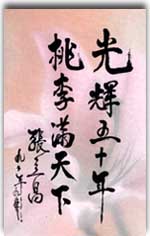 光輝五十年
桃李滿天下